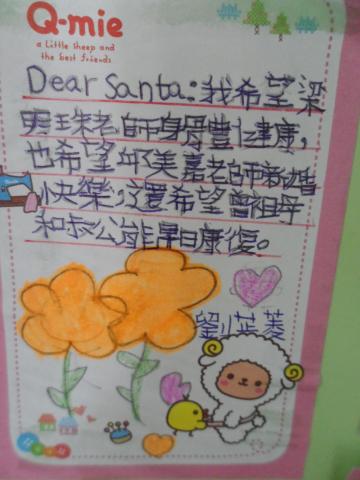 Q-mie
a Little Sheep and
the best friends
Dear Santa:我希望梁
珠老師身體健康,
也希望美嘉老師新婚
快樂;還希望曾祖母
和叔公能早日康復。
劉芷菱